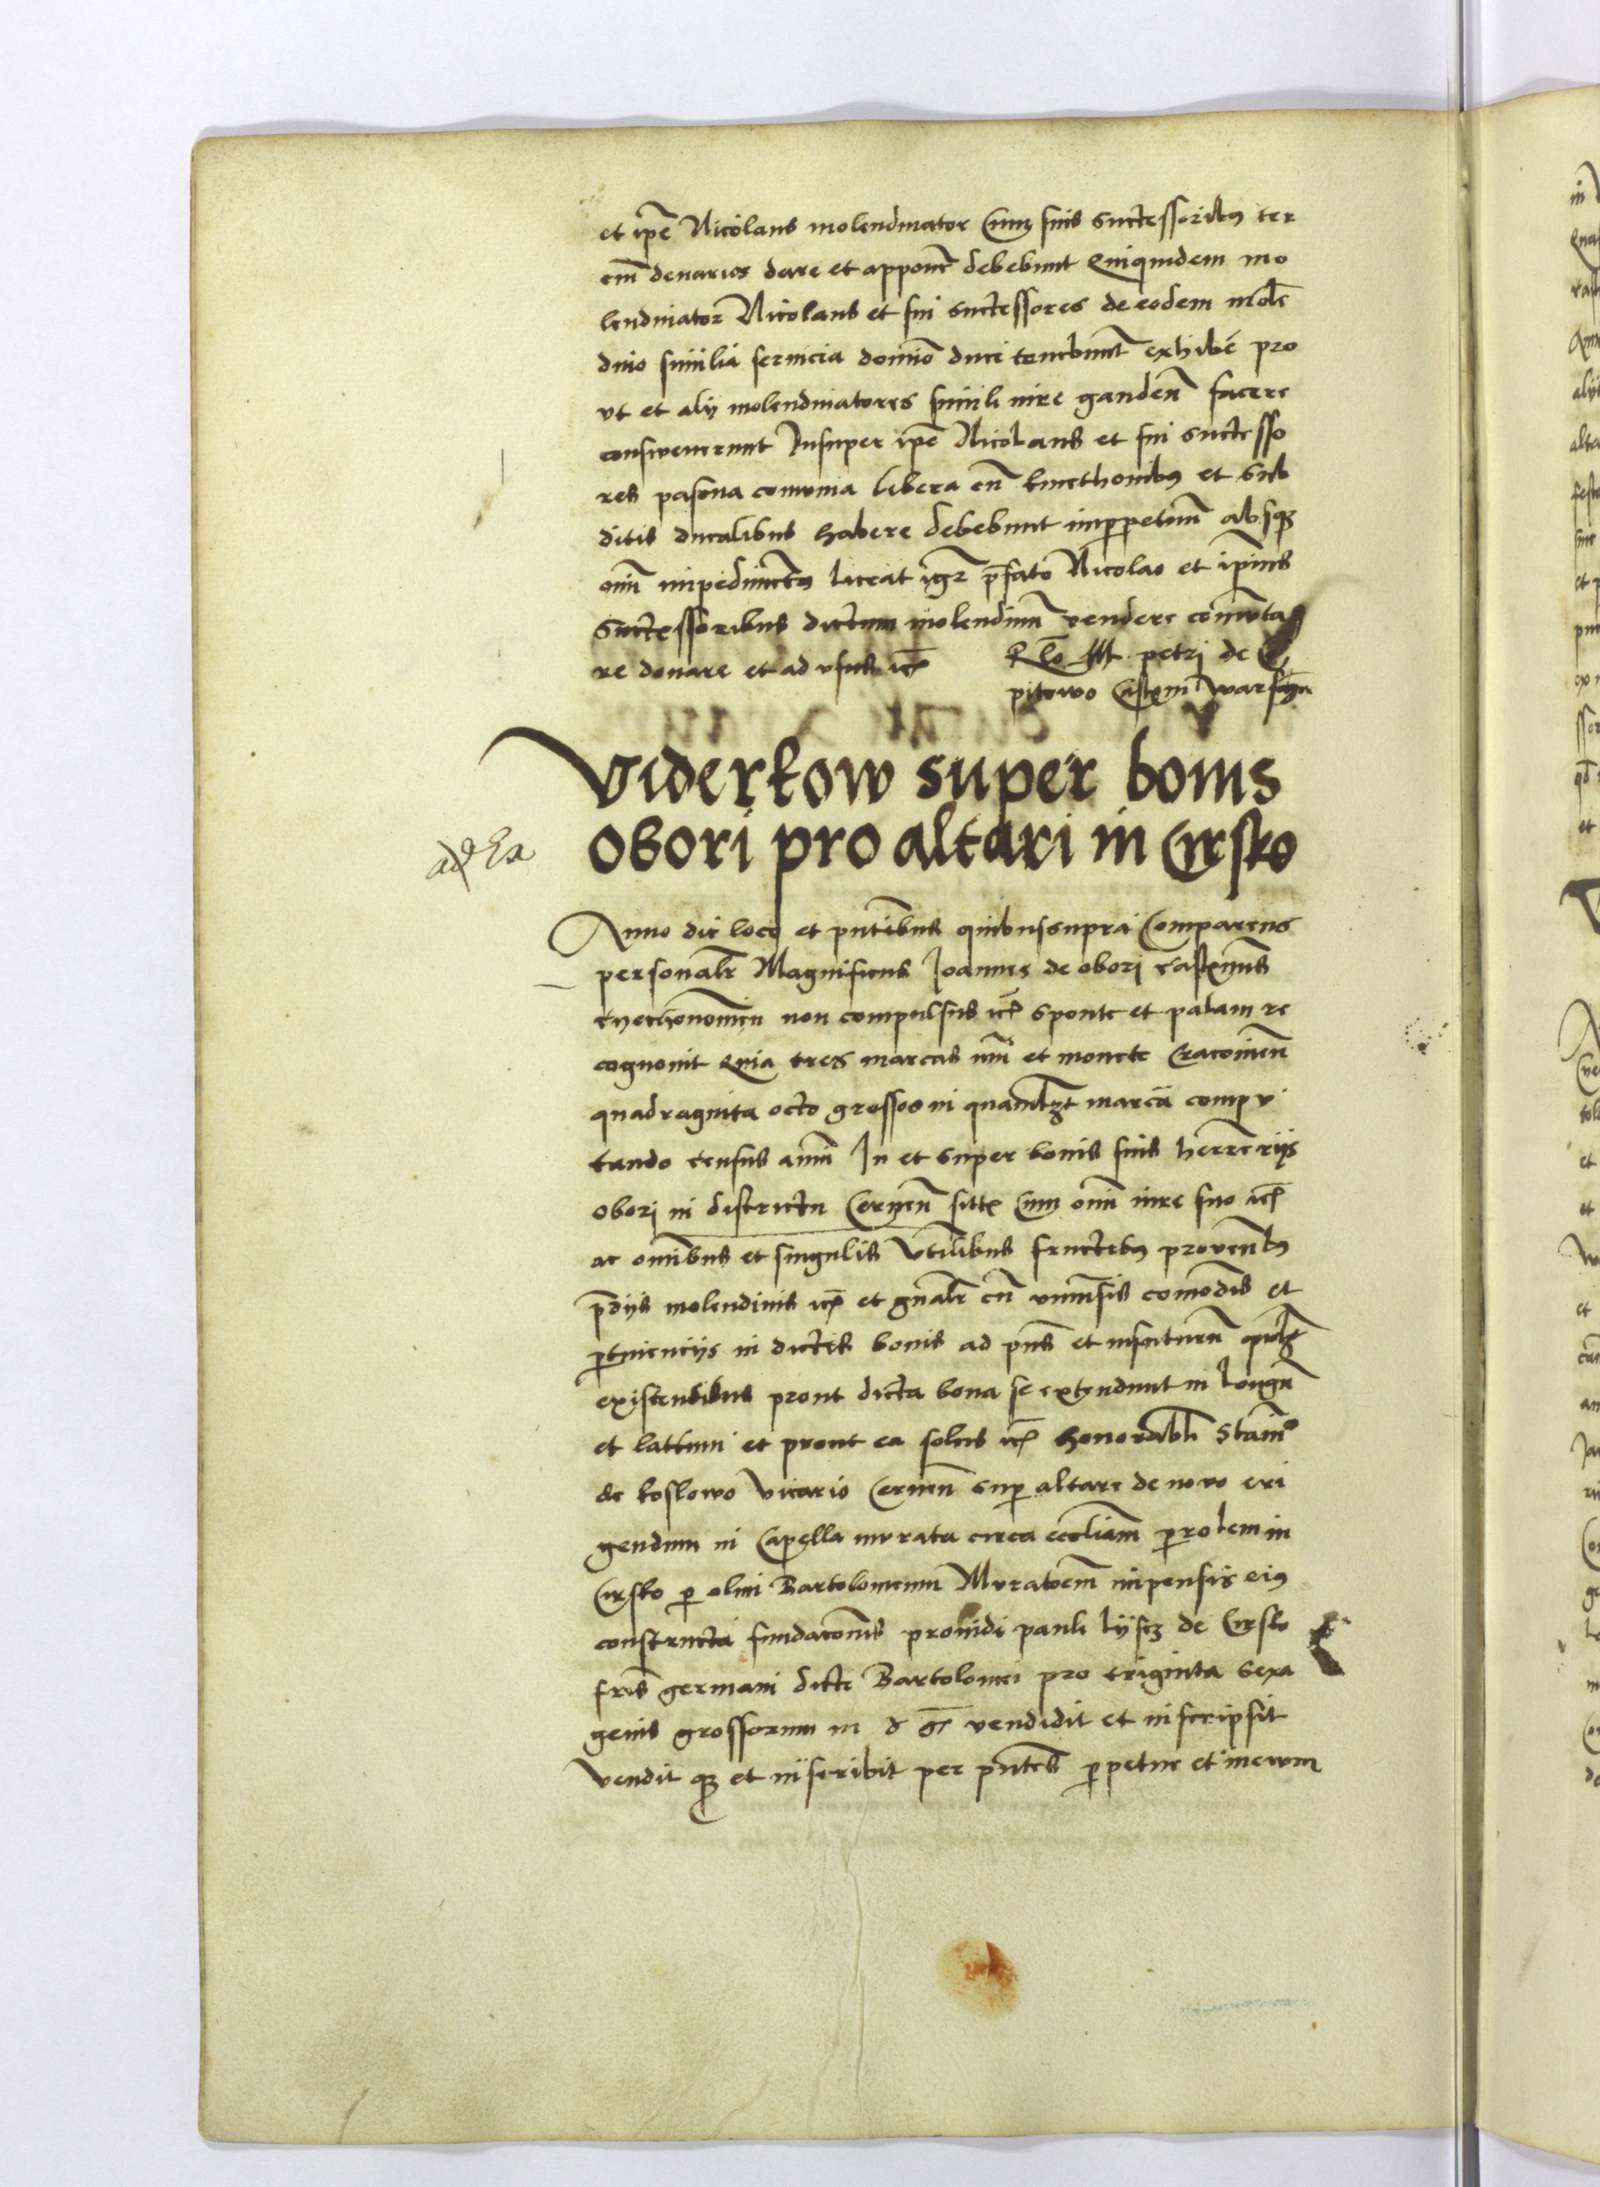 et ipe Nicolaus molendinator Cum suis successoribus ter
cim denarios dare et apponere debebunt Quiquidem mo
lendinator Nicolaus et sui successores de eodem mole
dino similia servicia domino duci tenebuntur exhibere pro
vt et alij molendinatores simili iure gauden facere
consweuerunt Insuper ipe Nicolaus et sui successo
res pascua comunia libera cum kmethonibus et sub
ditis ducalibus habere debebunt imperpetuum absque
omi impedimento liceat igr prefato Nicolao et ipius
Successoribus dictum molendinum vendere comuta
re donare et ad vsus etc
Rlo M petri de
pitowo Castni Warschn
Viderkow super bonis
obori pro altari in Cirsko
ad Ea
Anno die loco et pntibus quibus supra Comparens
personalr Magnificus Joannes de obori castnus
non compulsus etc sponte et palam re
cognouit Quia tres marcas nri et monete Cracouien
quadraginta octo grossos in quamlbt marcam compu
tando census anui In et super bonis suis herrerijs
obori in districtu Cernen sitis Cum omi iure suo etc
ac omibus et singulis Vtilibus fructibus prouentibus
pdijs molendinis etc et gnalr cum vniursis comodis et
ptinencijs in dictis bonis ad pns et infuturum qulbt
existentibus prout dicta bona se extendunt in Longum
et lattum et prout ea solus etc honorabli Stanis
de koslowo Vicario Cernen sup altare de nouo eri
gendum in Capella murata circa eccliam parolem in
Cirsko p olim Bartolomeum Muratorem impensis eius
constructa fundaconis prouidi pauli lijsz de Cirsko
fris germani dicti Bartolomei pro triginta sexa
genis grossorum in d gr vendidit et inscripsit
Vendit que et inscribit per pntes ppetue et in ewm